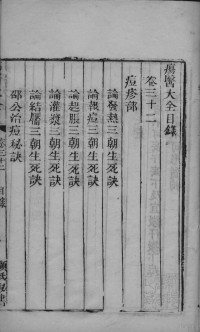 瘍醫大全目錄
卷三十二
痘疹部
論發熱三朝生死訣
論報痘三朝生死訣
論起脹三朝生死訣
論灌漿三朝生死訣
論結靨三朝生死訣
邵公治痘秘訣
卷三十二 目錄